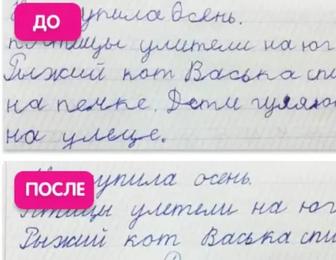 ДО
упила Осень.
птицы улители на юг
Рыжий кот Васька спи
на печке. Дети гуляю
на улеце.
ПОСЛЕ
упила осень.
Птицы улетели на юг
Рыжий кот Васька спи